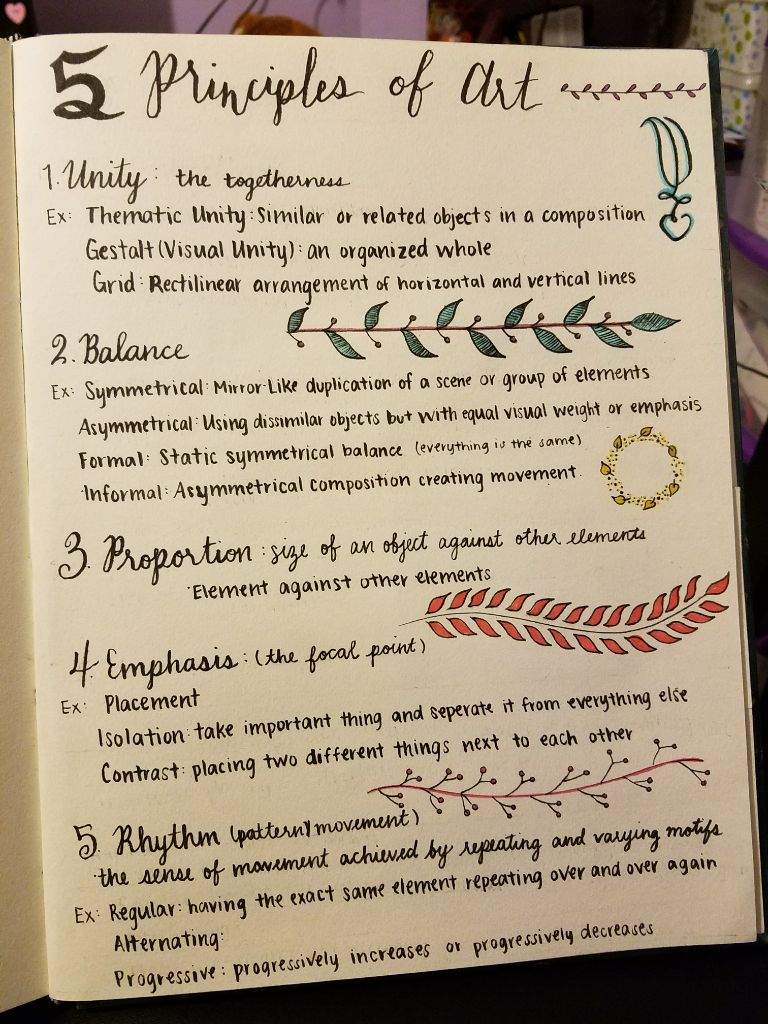 5 Principles of Art
1. Unity: the togetherness
Ex: Thematic Unity: Similar or related objects in a composition
Gestalt (Visual Unity): an organized whole
Grid: Rectilinear arrangement of horizontal and vertical lines
2. Balance
Ex: Symmetrical: Mirror-Like duplication of a scene or group of elements
Asymmetrical: Using dissimilar objects but with equal visual weight or emphasis
Formal: Static symmetrical balance (everything is the same)
·Informal: Asymmetrical composition creating movement.
3. Proportion: size of an object against other elements
·Element against other elements
4. Emphasis: (the focal point)
Ex: Placement
Isolation: take important thing and seperate it from everything else
Contrast: placing two different things next to each other
5. Rhythm (pattern/movement)
·the sense of movement achieved by repeating and varying motifs
Ex: Regular: having the exact same element repeating over and over again
Alternating:
Progressive: progressively increases or progressively decreases